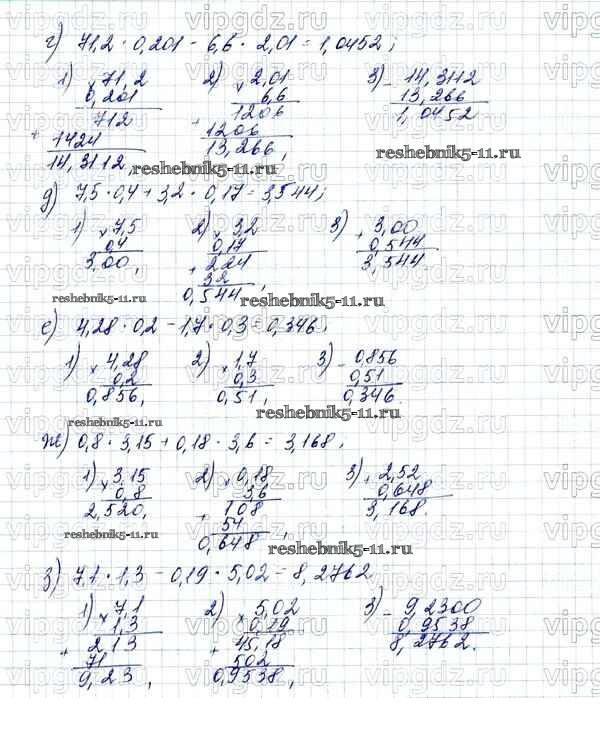 г) 71,2 · 0,201 - 6,6 · 2,01 = 1,0452;
1) × 71,2 2) × 2,01 3) - 14,3112
0,201 6,6 13,266
712 1206 1,0452
+ 1424 + 1206
14,3112, 13,266,
reshebnik5-11.ru reshebnik5-11.ru
д) 7,5 · 0,4 + 3,2 · 0,17 = 3,544;
1) × 7,5 2) × 3,2 3) + 3,00
0,4 0,17 0,544
3,00, + 224 3,544.
32
0,544,
reshebnik5-11.ru reshebnik5-11.ru
е) 4,28 · 0,2 - 1,7 · 0,3 = 0,346;
1) × 4,28 2) × 1,7 3) - 0,856
0,2 0,3 0,51
0,856, 0,51, 0,346.
reshebnik5-11.ru reshebnik5-11.ru
ж) 0,8 · 3,15 + 0,18 · 3,6 = 3,168,
1) × 3,15 2) × 0,18 3) + 2,52
0,8 3,6 0,648
2,520, + 108 3,168.
54
0,648,
reshebnik5-11.ru reshebnik5-11.ru
з) 7,1 · 1,3 - 0,19 · 5,02 = 8,2762
1) × 7,1 2) × 5,02 3) - 9,2300
1,3 0,19 0,9538
+ 213 + 45,18 8,2762.
71 502
9,23, 0,9538,
vipgdz.ru vipgdz.ru vipgdz.ru